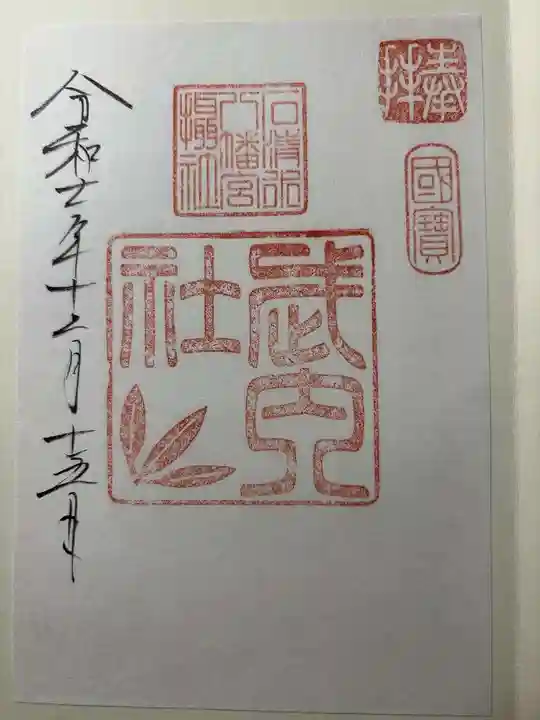 奉拝
國寶
石清水
八幡宮
摂社
武内
社
令和七年十二月十五日